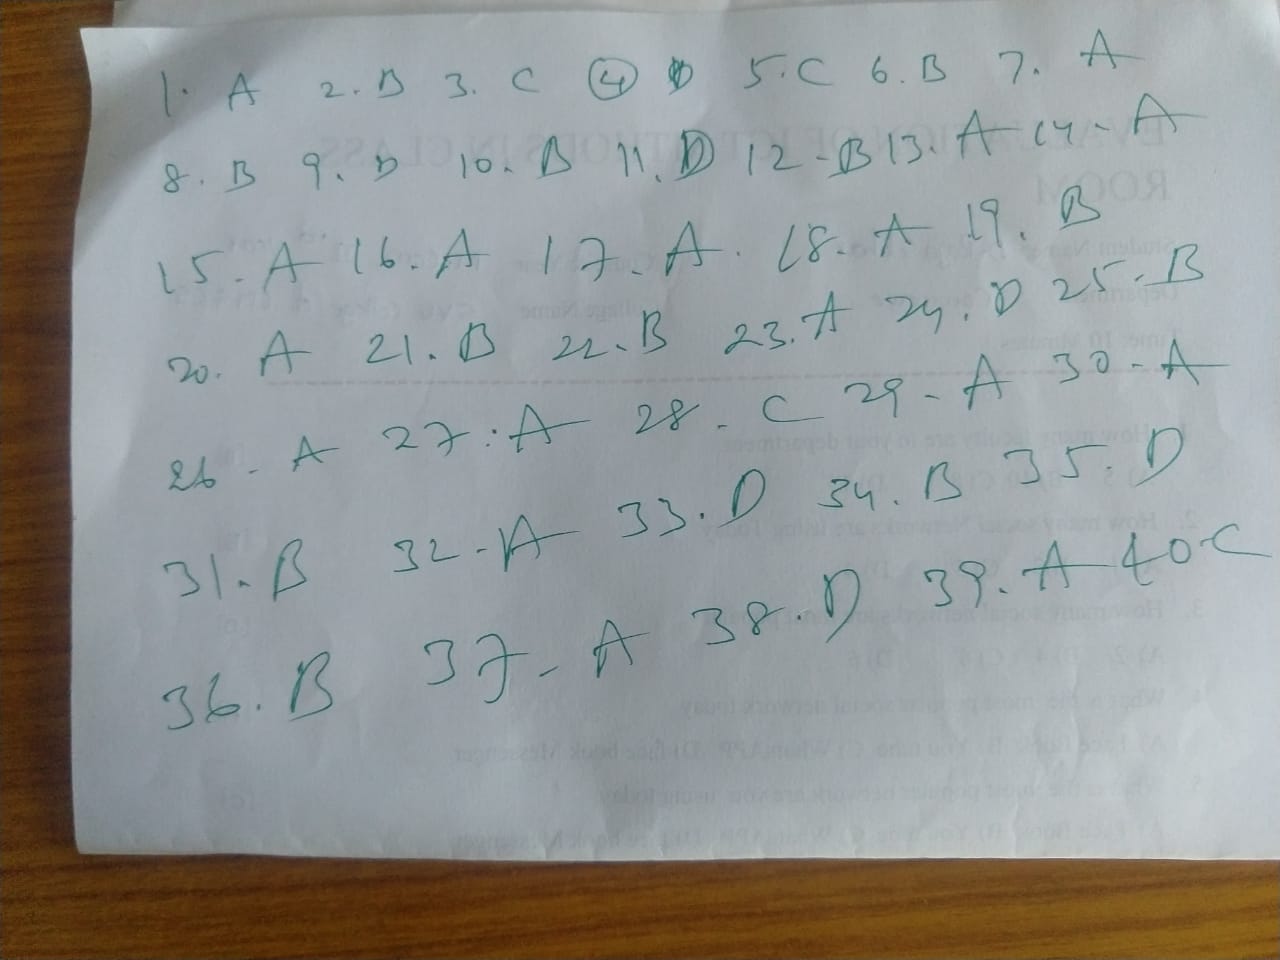 1. A 2. B 3. C 4 5. C 6. B 7. A
8. B 9. D 10. B 11. D 12 - B 13. A 14 - A
15 - A 16. A 17. A. 18. A 19. B
20. A 21. B 22. B 23. A 24. D 25 - B
26 - A 27. A 28. C 29 - A 30 - A
31. B 32 - A 33. D 34. B 35. D
36. B 37 - A 38. D 39. A 40 - C